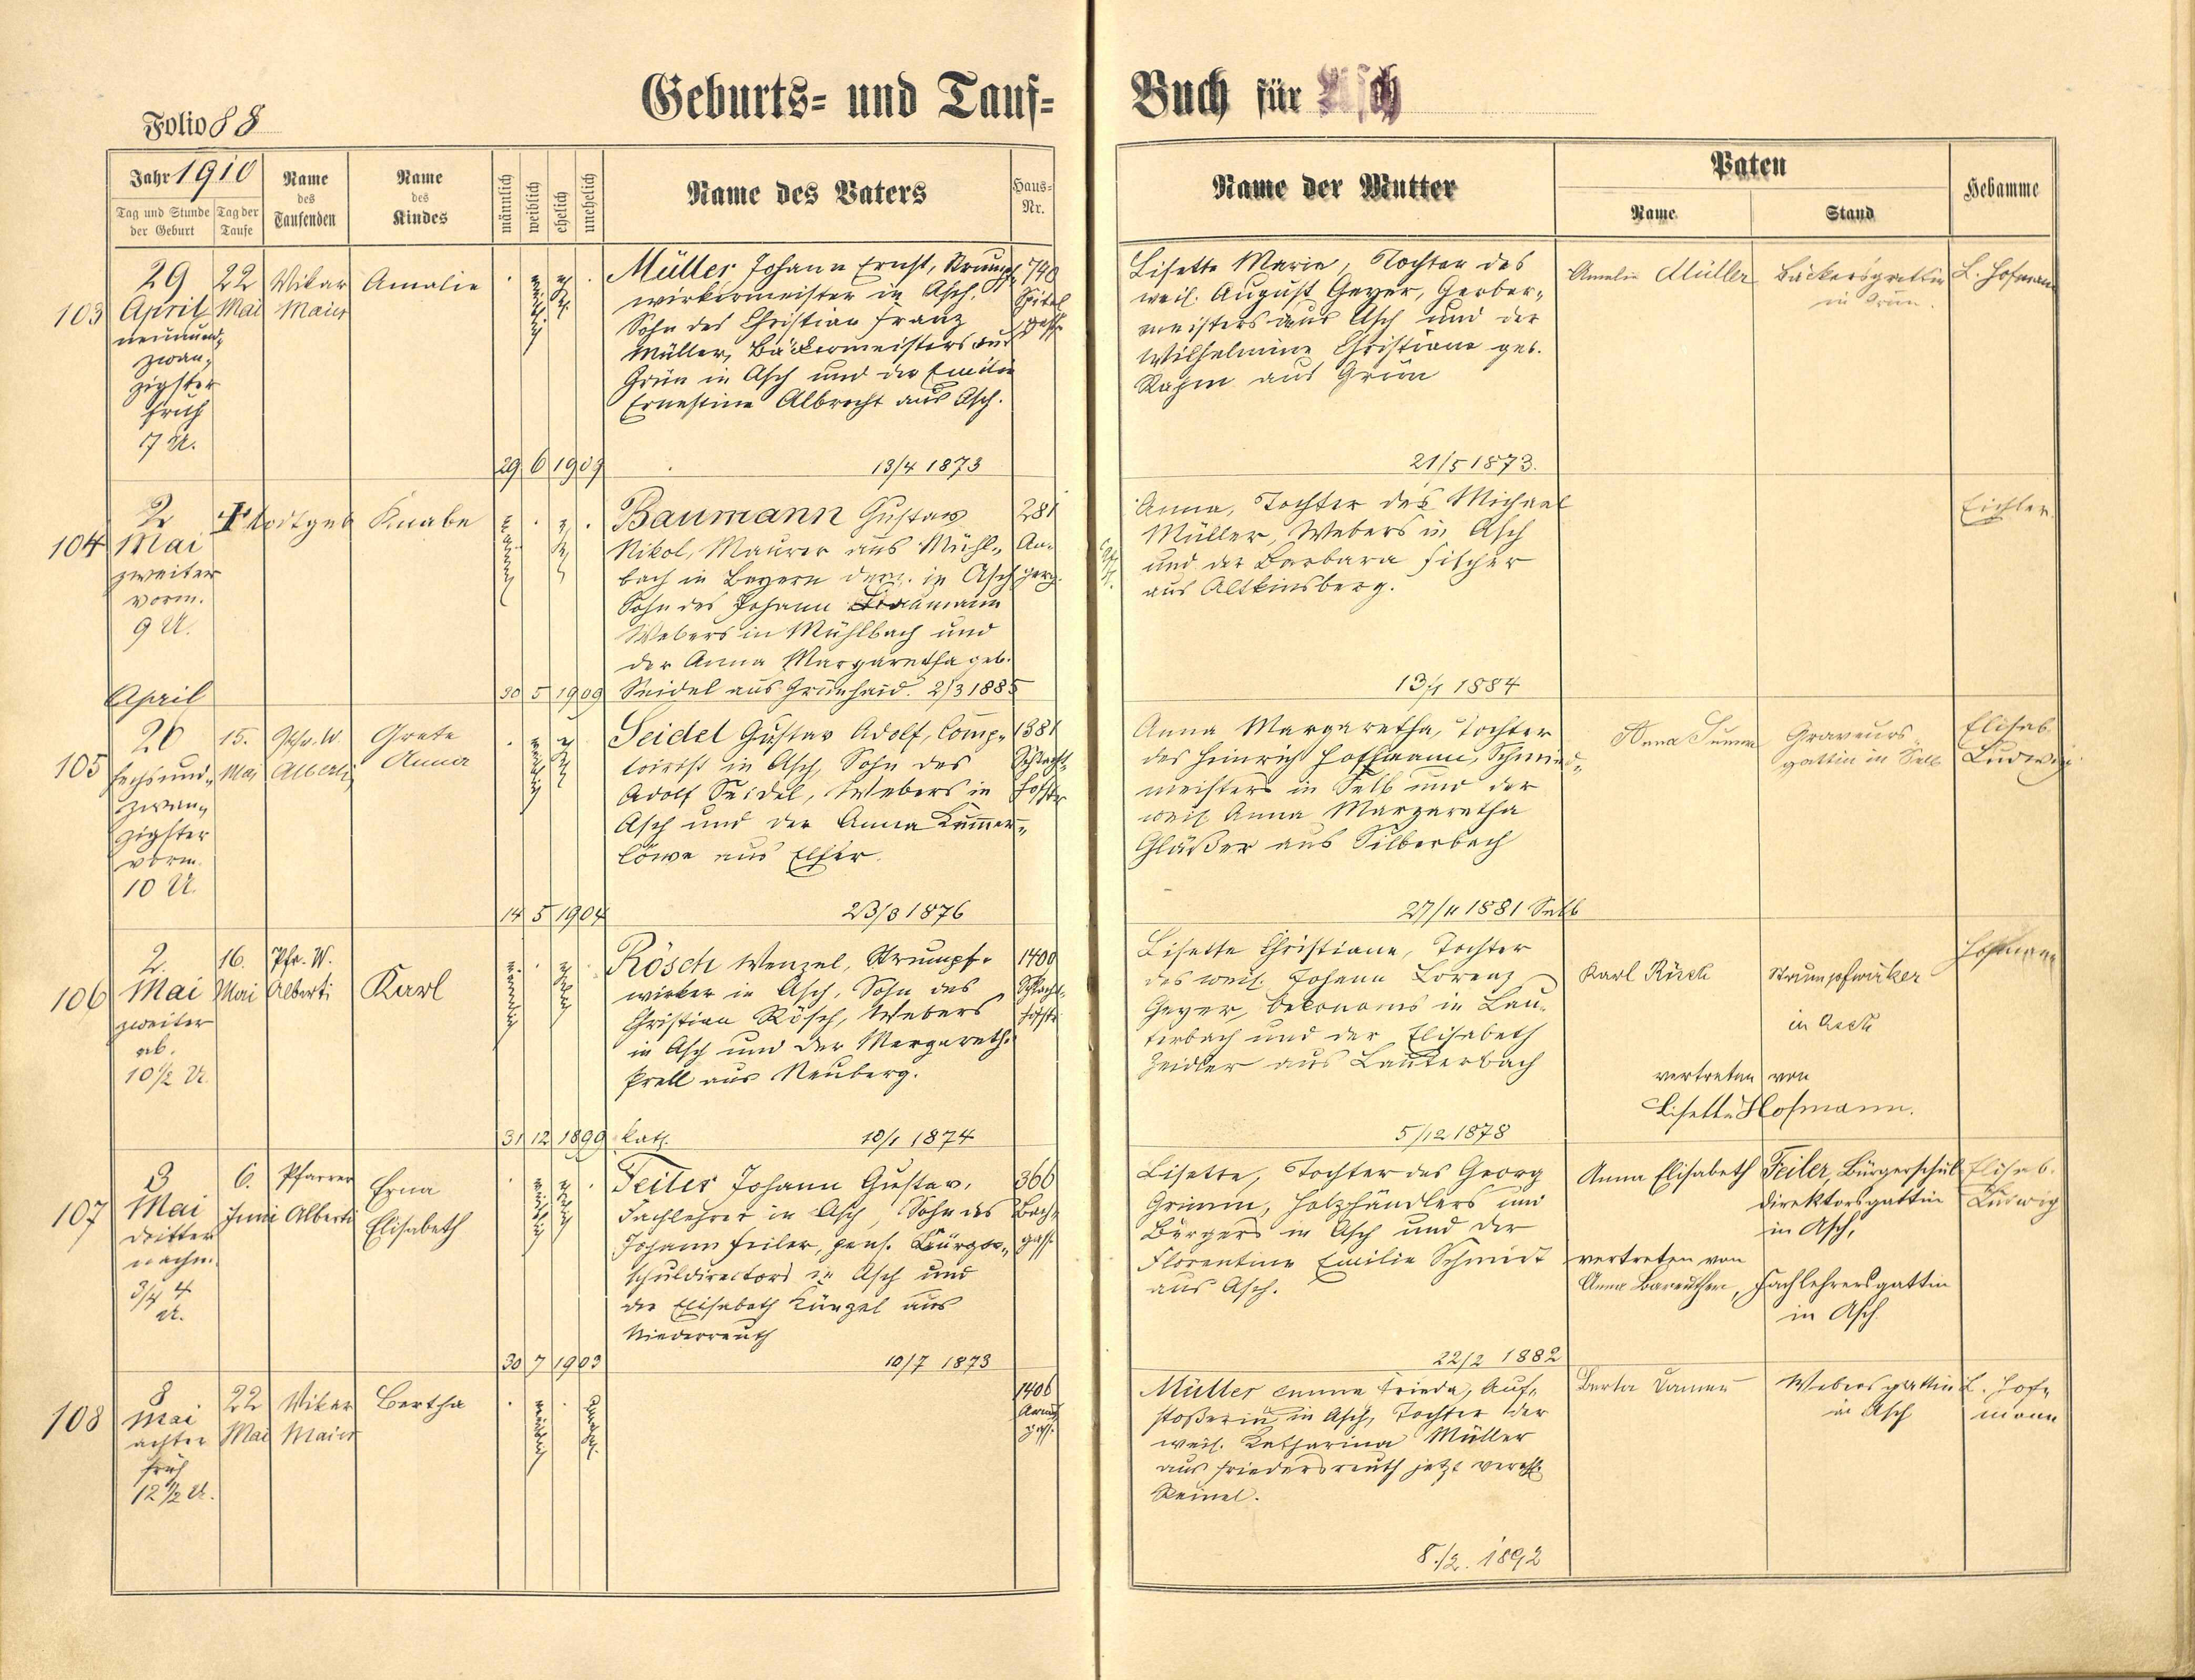 Geburts- und Tauf-
Buch für Asch
Folio 88
Jahr 1910
Tag und Stunde der Geburt
Tag der Taufe
Name des Taufenden
Name des Kindes
männlich
weiblich
ehelich
unehelich
Name des Vaters
Haus-Nr.
Name der Mutter
Paten
Name
Stand
Hebamme
103
29
April
neunund-
zwan-
zigster
früh
7 U.
22
Mai
Vikar
Maier
Amalie
29 6 1909
Müller Johann Ernst, Strumpf-
wirkermeister in Asch,
Sohn des Christian Franz
Müller, Bäckermeisters aus
Grün in Asch und der Emilie
Ernestine Albrecht aus Asch.
13/4 1873
740
Spital
gasse
Lisette Marie, Tochter des
weil. August Geyer, Gerber-
meisters aus Asch und der
Wilhelmine Christiane geb.
aus Grün
21/5 1873.
Amalie Müller
Bäckersgattin
in Grün.
L. Hofmann
104
2
Mai
zweiter
vorm.
9 U.
† todtgeb
Knabe
30 5 1909
Baumann Gustav
Nikol, Maurer aus Mühl-
bach in Bayern derz. in Asch
Sohn des Johann Baumann
Webers in Mühlbach und
der Anna Margaretha geb.
Seidel aus Grünhaid. 2/3 1885
281
Anna, Tochter des Michael
Müller, Webers in Asch
und der Barbara Fischer
aus Altkinsberg.
13/1 1884
Eichler.
April
105
26
sechsund-
zwan-
zigster
vorm.
10 U.
15.
Mai
Pfr. W.
Alberti
Grete
Anna
14 5 1904
Seidel Gustav Adolf, Comp-
toirist in Asch, Sohn des
Adolf Seidel, Webers in
Asch und der Anna Künner-
löwe aus Elster.
23/3 1876
1381
Schlacht-
hofstr
Anna Margaretha, Tochter
des Heinrich Hoffmann, Schmied-
meisters in Selb und der
weil. Anna Margaretha
Gläßer aus Silberbach
27/11 1881 Selb
Anna
Graveurs-
gattin in Selb
Elisab.
Ludwig
106
2.
Mai
zweiter
ab.
10 1/2 U.
16.
Mai
Pfr. W.
Alberti
Karl
31 12 1899
Rösch Wenzel, Strumpf-
wirker in Asch, Sohn des
Christian Rösch, Webers
in Asch und der Margareth.
Prell aus Neuberg.
kath. 10/1 1874
1400
Schlacht-
hofstr.
Lisette Christiane, Tochter
des weil. Johann Lorenz
Geyer, Oekonoms in Lau-
terbach und der Elisabeth
Zeidler aus Lauterbach
5/12 1878
Karl Rösch
Strumpfwirker
in Asch
vertreten von
Lisette Hofmann.
Hofmann
107
3
Mai
dritter
nachm.
3/4 4
U.
6.
Juni
Pfarrer
Alberti
Erna
Elisabeth
30 7 1903
Feiler Johann Gustav,
Fachlehrer in Asch, Sohn des
Johann Feiler, pens. Bürger-
schuldirectors in Asch und
der Elisabeth Künzel aus
Niederreuth
10/7 1873
366
Bach-
gasse
Lisette, Tochter des Georg
Grimm, Holzhändlers und
Bürgers in Asch und der
Florentine Emilie Schmidt
aus Asch.
22/2 1882
Anna Elisabeth Feiler, Bürgerschul-
direktorsgattin
in Asch,
vertreten von
Anna Bareuther, Fachlehrersgattin
in Asch
Elisab.
Ludwig
108
8
Mai
achter
früh
12 1/2 U.
22
Mai
Vikar
Maier
Bertha
1406
Müller Emma Frieda, Auf-
stoßerin in Asch, Tochter der
weil. Katharina Müller
aus Friedersreuth jetzt verehl.
Reinel.
8./2. 1892
Berta
Webersgattin
in Asch
L. Hof-
mann